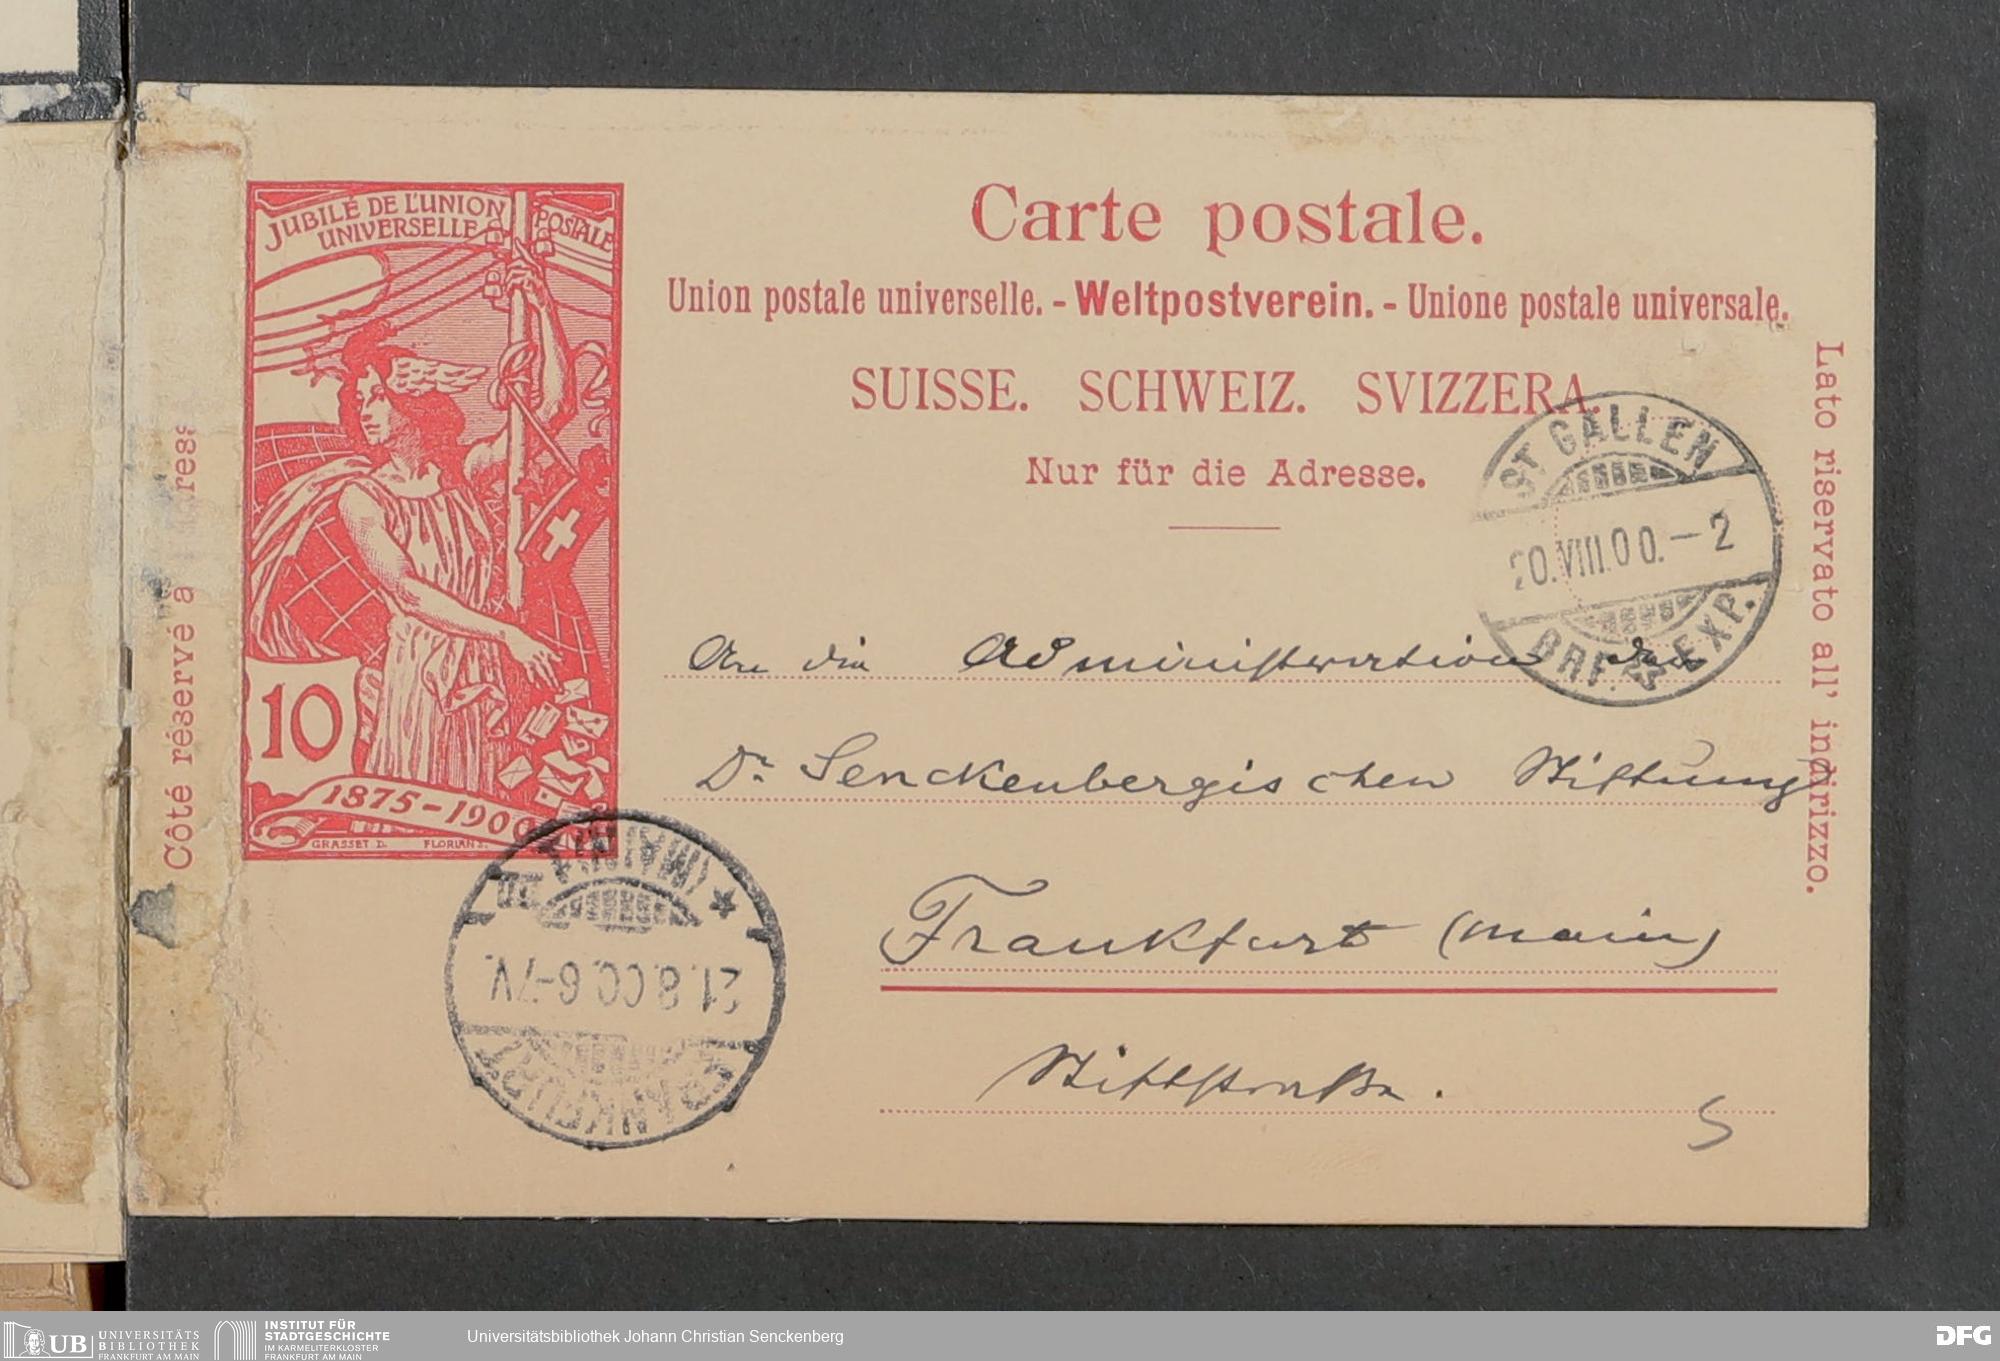 JUBILÉ DE L'UNION POSTALE
UNIVERSELLE
10
1875-1900
GRASSET D. FLORIAN S.
Côté réservé à ress
Carte postale.
Union postale universelle. - Weltpostverein. - Unione postale universale.
SUISSE. SCHWEIZ. SVIZZERA.
Nur für die Adresse.
Lato riservato all' indirizzo.
ST GALLEN
20.VIII.00.-2
BRF. EXP.
An die Administration der
Dr Senckenbergischen Stiftung
Frankfurt (Main)
Stiftstraße.
5
FRANKFURT
21.8.00.6-7V.
(MAIN)
UB UNIVERSITÄTS
BIBLIOTHEK
FRANKFURT AM MAIN
INSTITUT FÜR
STADTGESCHICHTE
IM KARMELITERKLOSTER
FRANKFURT AM MAIN
Universitätsbibliothek Johann Christian Senckenberg
DFG